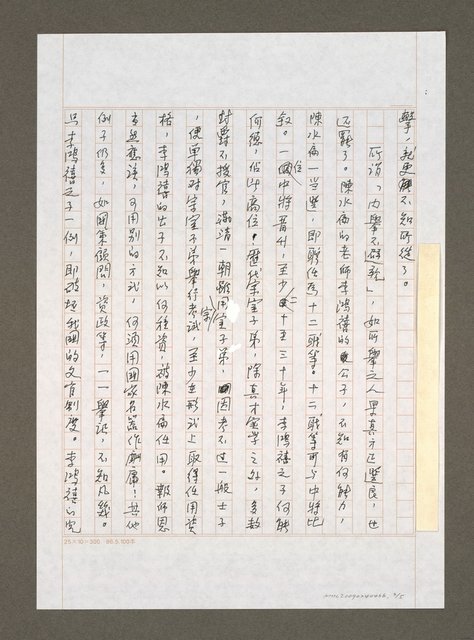 學，就更不知所從了。
所謂「內舉不避親」，如所舉之人果真才正豐良，也
还罷了。陳水扁的老師李鴻禧的公子，不知有何能力，
陳水扁一當選，即聘任為十二職等。十二職等可与中將比
敘。一位國中將晋升，至少二十至三十年，李鴻禧之子何能
何德，佔此高位？歷代宗室子弟，除真才實学之外，多数
封爵不授官，滿清一朝雖用宗室子弟，因考不过一般士子
，便單獨对宗室子弟舉行考試，至少在形式上取得任用資
格，李鴻禧的公子不知以何種資，被陳水扁任用。報師恩
當然應該，可用別的方式，何須用國家名器作酬庸！其他
例子仍多，如國策顧問，資政等，一一舉証，不知凡幾。
只李鴻禧之子一例，即破壞我國的文官制度。李鴻禧的兒
25×10=300 86.5.100本